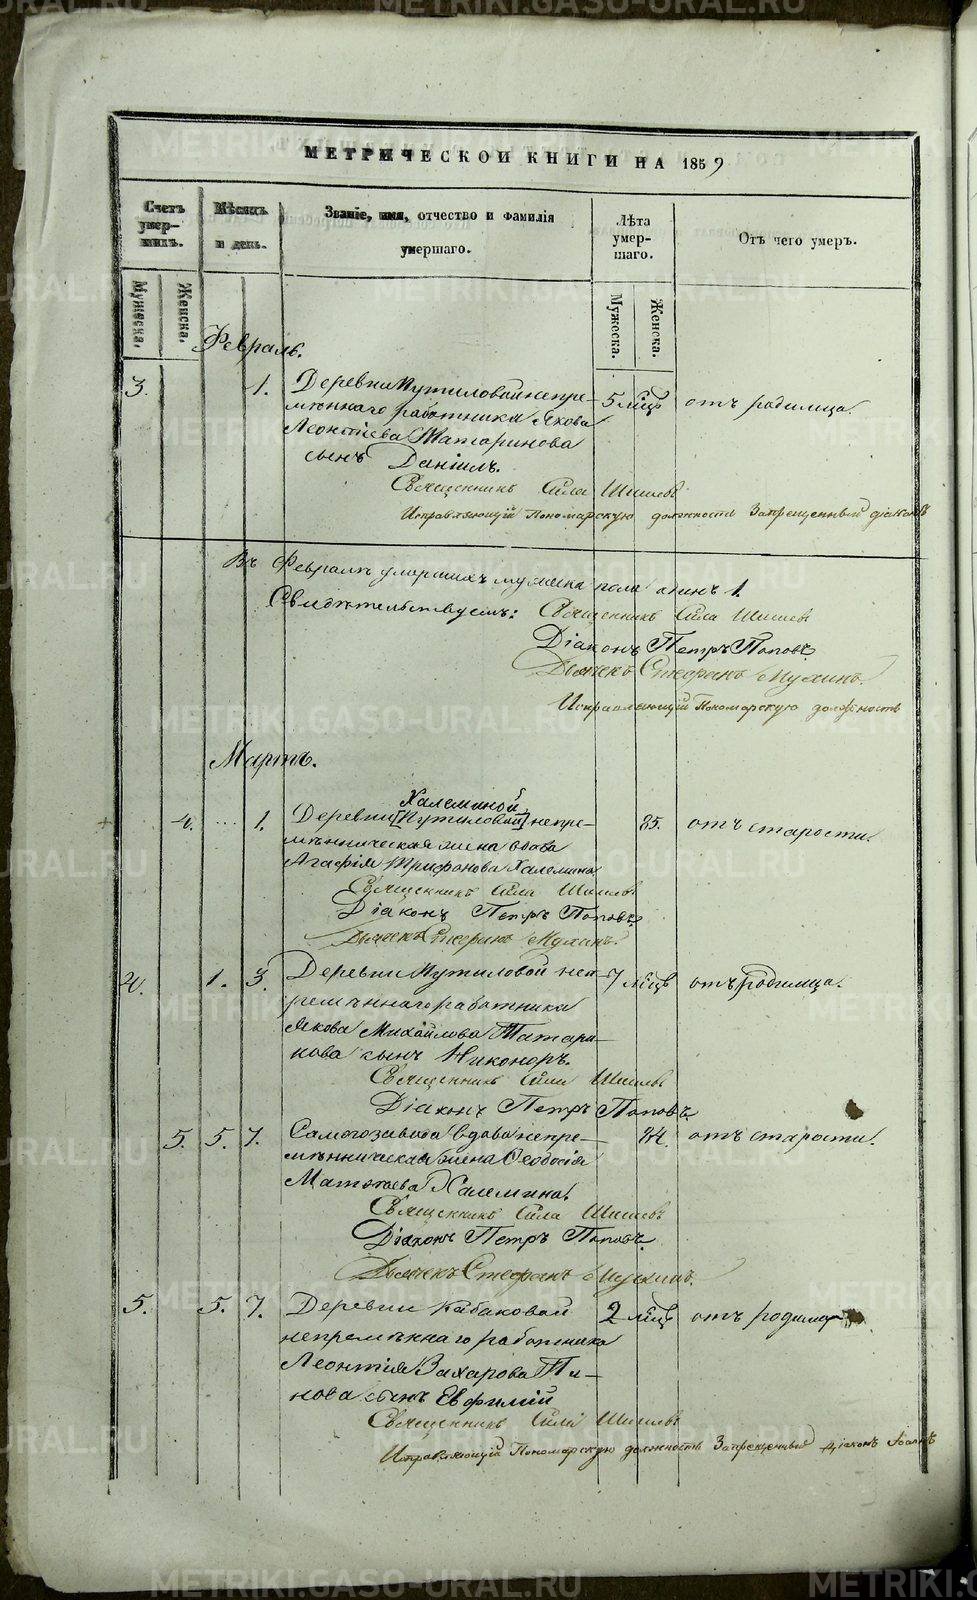 МЕТРИЧЕСКОЙ КНИГИ НА 1859
Счетъ умер-шихъ.
Мѣсяцъ и день.
Званіе, имя, отчество и фамилія умершаго.
Лѣта умер-шаго.
Отъ чего умеръ.
Мужеска.
Женска.
Мужеска.
Женска.
Февраль.
3. 1. Деревни Путиловой непре- 5 мѣсц отъ родимца.
мѣннаго работника Якова
Леонтіева Татаринова
сынъ Даніилъ.
Священникъ Сѵла Шишевъ
Исправляющій Пономарскую должность Запрещенный діаконъ
Въ Февралѣ умершихъ мужеска пола одинъ 1.
Свидѣтельствуемъ: Священникъ Сѵла Шишевъ
Діаконъ Петръ Поповъ
Дьячекъ Стефанъ Мухинъ.
Исправляющій Пономарскую должность
Мартъ.
Халеминой
4. 1. Деревни [Путиловой] непре- 85. отъ старости.
мѣнническая жена вдова
Агафія Трифонова Халемина.
Священникъ Сѵла Шишевъ
Діаконъ Петръ Поповъ
Дьячекъ Стефанъ Мухинъ.
4. 1. 3. Деревни Путиловой неп- 7 мѣсц отъ родимца.
ремѣннаго работника
Якова Михайлова Татари-
нова сынъ Никоноръ.
Священникъ Сѵла Шишевъ
Діаконъ Петръ Поповъ
5. 5. 7. Самогозавода вдова непре- 84. отъ старости.
мѣнническая жена Феодосія
Матѳеева Халемина.
Священникъ Сѵла Шишевъ
Діаконъ Петръ Поповъ
Дьячекъ Стефанъ Мухинъ.
5. 5. 7. Деревни Кабаковой 2 мѣсц отъ родимца
непремѣннаго работника
Леонтія Захарова Пи-
нова сынъ Евфимій
Священникъ Сѵла Шишевъ
Исправляющій Пономарскую должность Запрещенный діаконъ Іоаннъ
METRIKI.GASO-URAL.RU